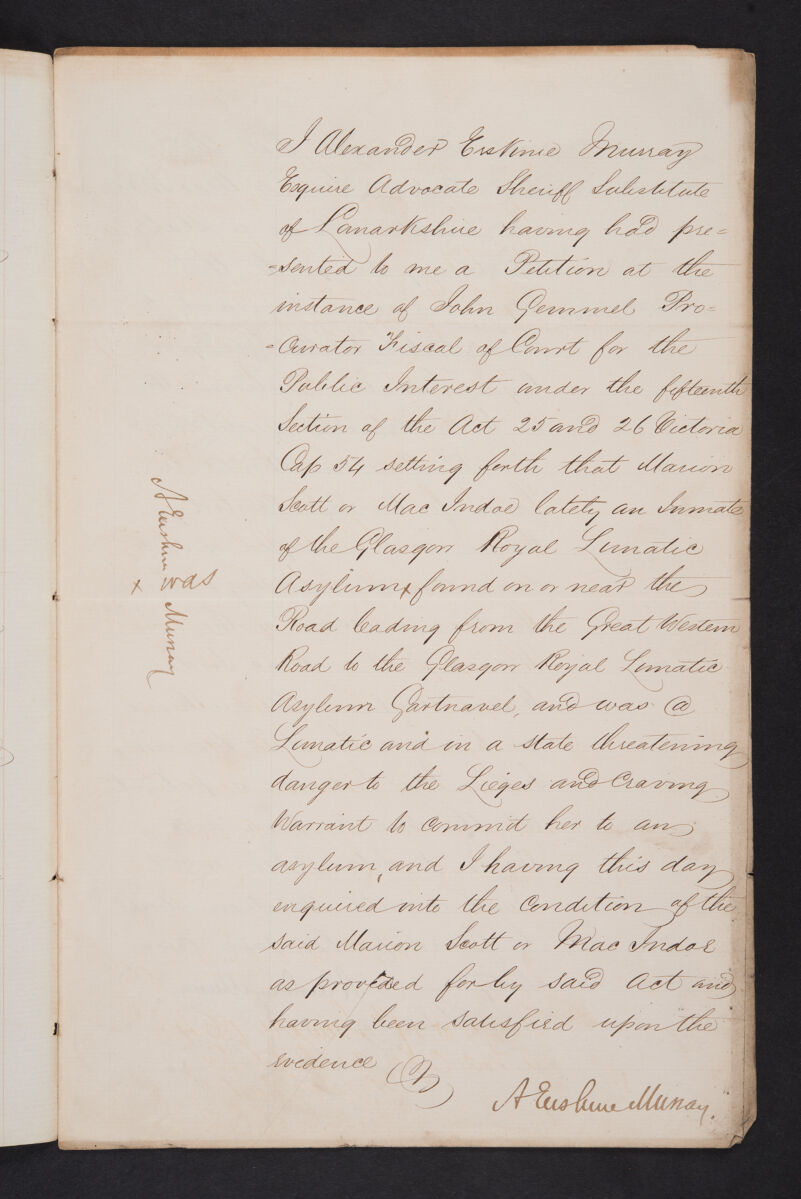 I Alexander Erskine Murray
Esquire Advocate Sheriff Substitute
of Lanarkshire having had pre=
=sented to me a Petition at the
instance of John Gemmel Pro=
=curator Fiscal of Court for the
Public Interest under the fifteenth
Section of the Act 25 and 26 Victoria
Cap 54 setting forth that Marion
Scott or Mac Indoe lately an Inmate
of the Glasgow Royal Lunatic
Asylum x found on or near the
Road leading from the Great Western
Road to the Glasgow Royal Lunatic
Asylum Gartnavel, and was @
Lunatic and in a state threatening
danger to the Lieges and Craving
Warrant to commit her to an
asylum, and I having this day
enquired into the condition of the
said Marion Scott or Mac Indoe
as provided for by said Act and
having been satisfied upon the
evidence
A Erskine Murray
x was
A Erskine Murray